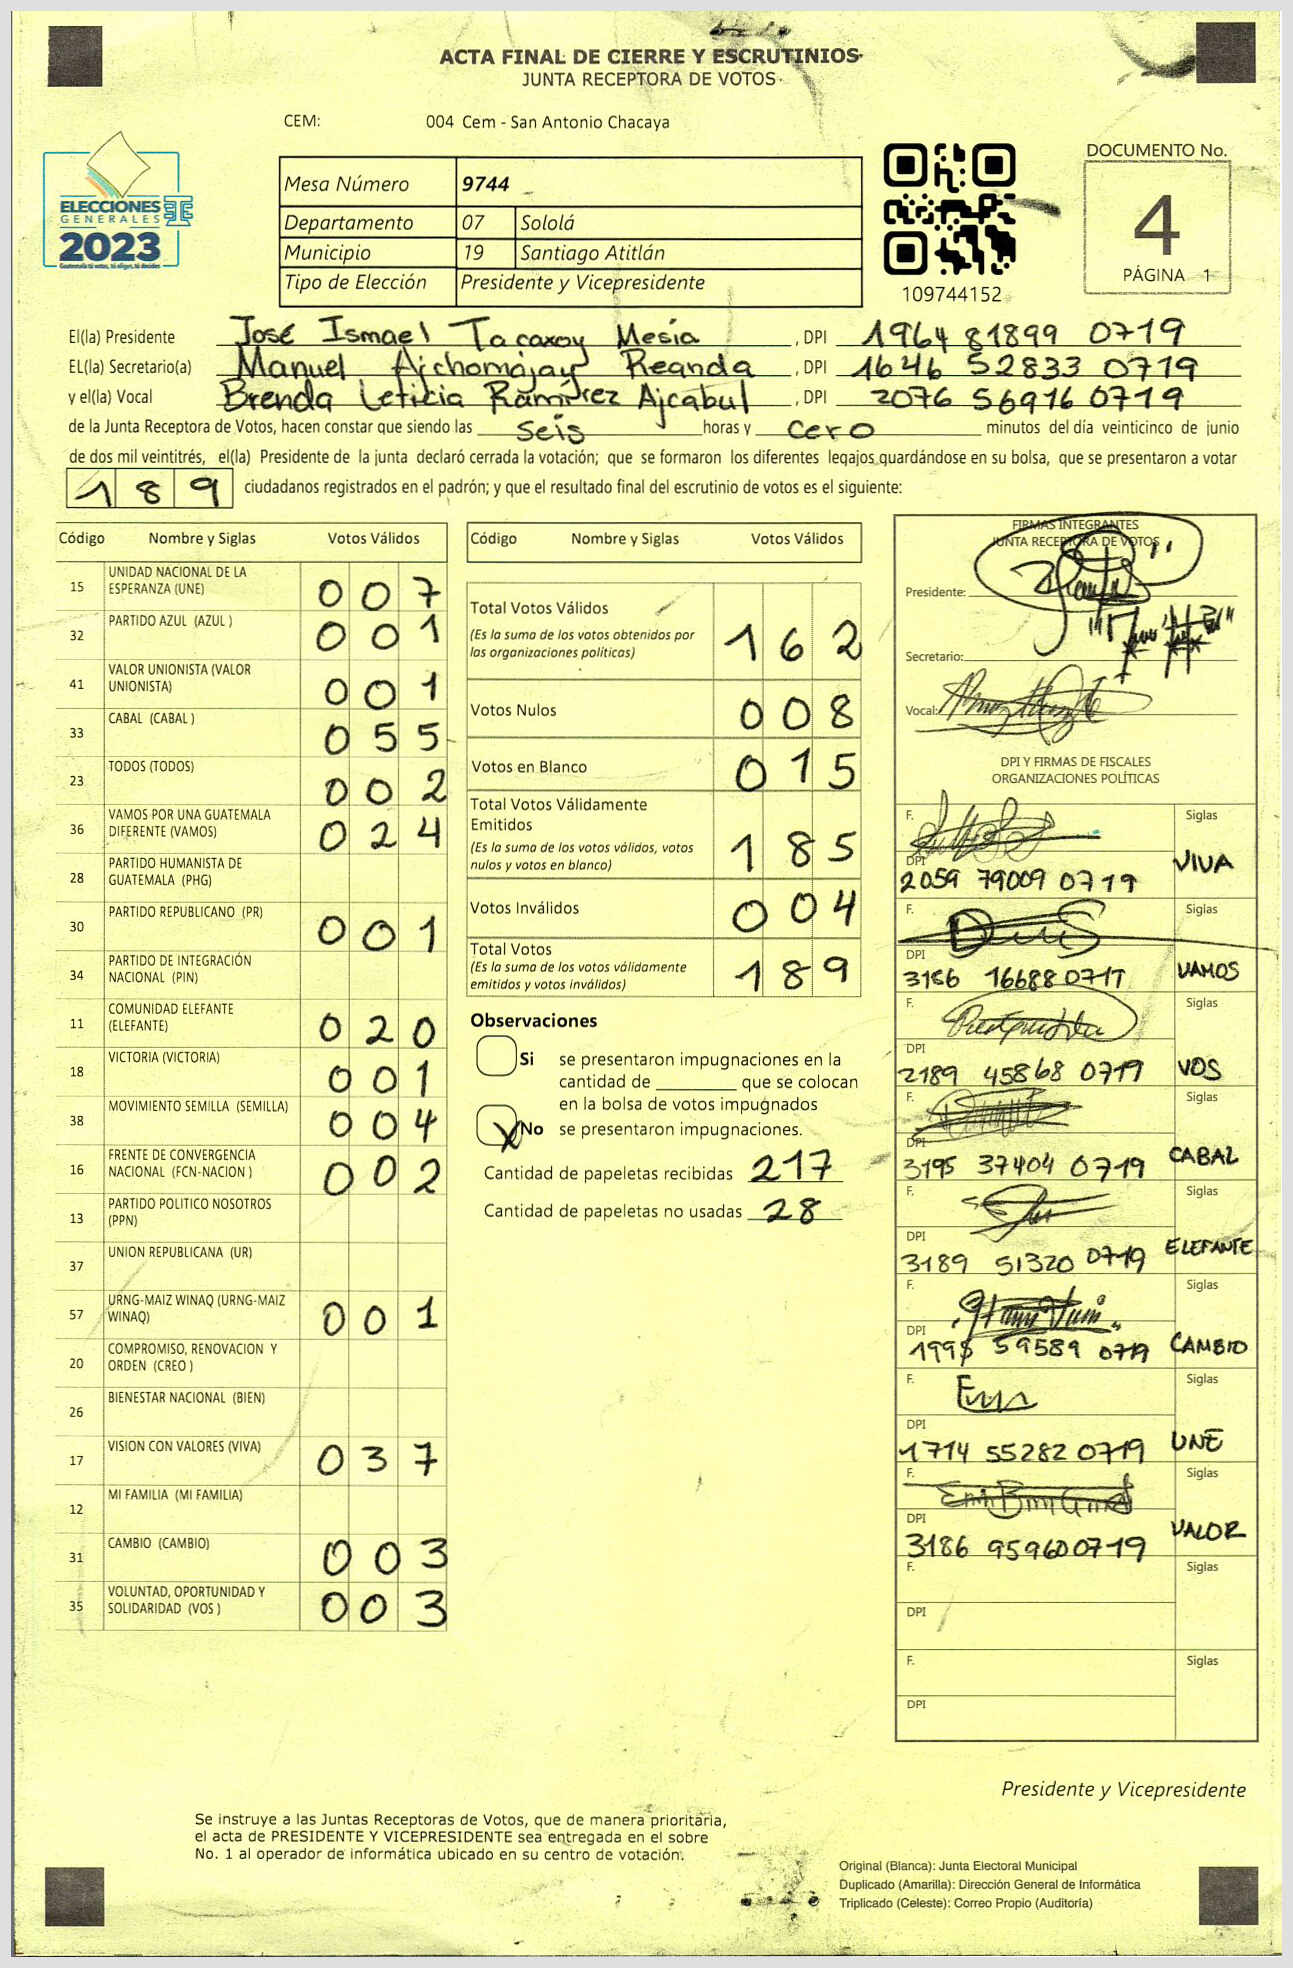 ACTA FINAL DE CIERRE Y ESCRUTINIOS
JUNTA RECEPTORA DE VOTOS
CEM: 004 Cem - San Antonio Chacaya
ELECCIONES
GENERALES
2023
Guatemala tú votas, tú eliges, tú decides
Mesa Número 9744
Departamento 07 Sololá
Municipio 19 Santiago Atitlán
Tipo de Elección Presidente y Vicepresidente
109744152
DOCUMENTO No.
4
PÁGINA 1
El(la) Presidente José Ismael Tacaxoy Mesía , DPI 1964 81899 0719
EL(la) Secretario(a) Manuel Ajchomajay Reanda , DPI 1646 52833 0719
y el(la) Vocal Brenda Leticia Ramírez Ajcabul , DPI 2076 56916 0719
de la Junta Receptora de Votos, hacen constar que siendo las seis horas y cero minutos del día veinticinco de junio
de dos mil veintitrés, el(la) Presidente de la junta declaró cerrada la votación; que se formaron los diferentes legajos guardándose en su bolsa, que se presentaron a votar
189 ciudadanos registrados en el padrón; y que el resultado final del escrutinio de votos es el siguiente:
Código Nombre y Siglas Votos Válidos
15 UNIDAD NACIONAL DE LA ESPERANZA (UNE) 007
32 PARTIDO AZUL (AZUL ) 001
41 VALOR UNIONISTA (VALOR UNIONISTA) 001
33 CABAL (CABAL ) 055
23 TODOS (TODOS) 002
36 VAMOS POR UNA GUATEMALA DIFERENTE (VAMOS) 024
28 PARTIDO HUMANISTA DE GUATEMALA (PHG)
30 PARTIDO REPUBLICANO (PR) 001
34 PARTIDO DE INTEGRACIÓN NACIONAL (PIN)
11 COMUNIDAD ELEFANTE (ELEFANTE) 020
18 VICTORIA (VICTORIA) 001
38 MOVIMIENTO SEMILLA (SEMILLA) 004
16 FRENTE DE CONVERGENCIA NACIONAL (FCN-NACION ) 002
13 PARTIDO POLITICO NOSOTROS (PPN)
37 UNION REPUBLICANA (UR)
57 URNG-MAIZ WINAQ (URNG-MAIZ WINAQ) 001
20 COMPROMISO, RENOVACION Y ORDEN (CREO )
26 BIENESTAR NACIONAL (BIEN)
17 VISION CON VALORES (VIVA) 037
12 MI FAMILIA (MI FAMILIA)
31 CAMBIO (CAMBIO) 003
35 VOLUNTAD, OPORTUNIDAD Y SOLIDARIDAD (VOS ) 003
Código Nombre y Siglas Votos Válidos
Total Votos Válidos 162
(Es la suma de los votos obtenidos por
las organizaciones políticas)
Votos Nulos 008
Votos en Blanco 015
Total Votos Válidamente
Emitidos 185
(Es la suma de los votos válidos, votos
nulos y votos en blanco)
Votos Inválidos 004
Total Votos 189
(Es la suma de los votos válidamente
emitidos y votos inválidos)
Observaciones
Si se presentaron impugnaciones en la
cantidad de ________ que se colocan
en la bolsa de votos impugnados
X No se presentaron impugnaciones.
Cantidad de papeletas recibidas 217
Cantidad de papeletas no usadas 28
FIRMAS INTEGRANTES
JUNTA RECEPTORA DE VOTOS
Presidente:
Secretario:
Vocal:
DPI Y FIRMAS DE FISCALES
ORGANIZACIONES POLÍTICAS
F. Siglas
DPI 2059 79009 0719 VIVA
F. Siglas
DPI 3186 16688 0717 VAMOS
F. Siglas
DPI 2189 45868 0719 VOS
F. Siglas
DPI 3195 37404 0719 CABAL
F. Siglas
DPI 3189 51320 0719 ELEFANTE
F. Siglas
DPI 59589 0719 CAMBIO
F. Siglas
DPI 1714 55282 0719 UNE
F. Siglas
DPI 3186 95960 0719 VALOR
F. Siglas
DPI
F. Siglas
DPI
Presidente y Vicepresidente
Se instruye a las Juntas Receptoras de Votos, que de manera prioritaria,
el acta de PRESIDENTE Y VICEPRESIDENTE sea entregada en el sobre
No. 1 al operador de informática ubicado en su centro de votación.
Original (Blanca): Junta Electoral Municipal
Duplicado (Amarilla): Dirección General de Informática
Triplicado (Celeste): Correo Propio (Auditoría)